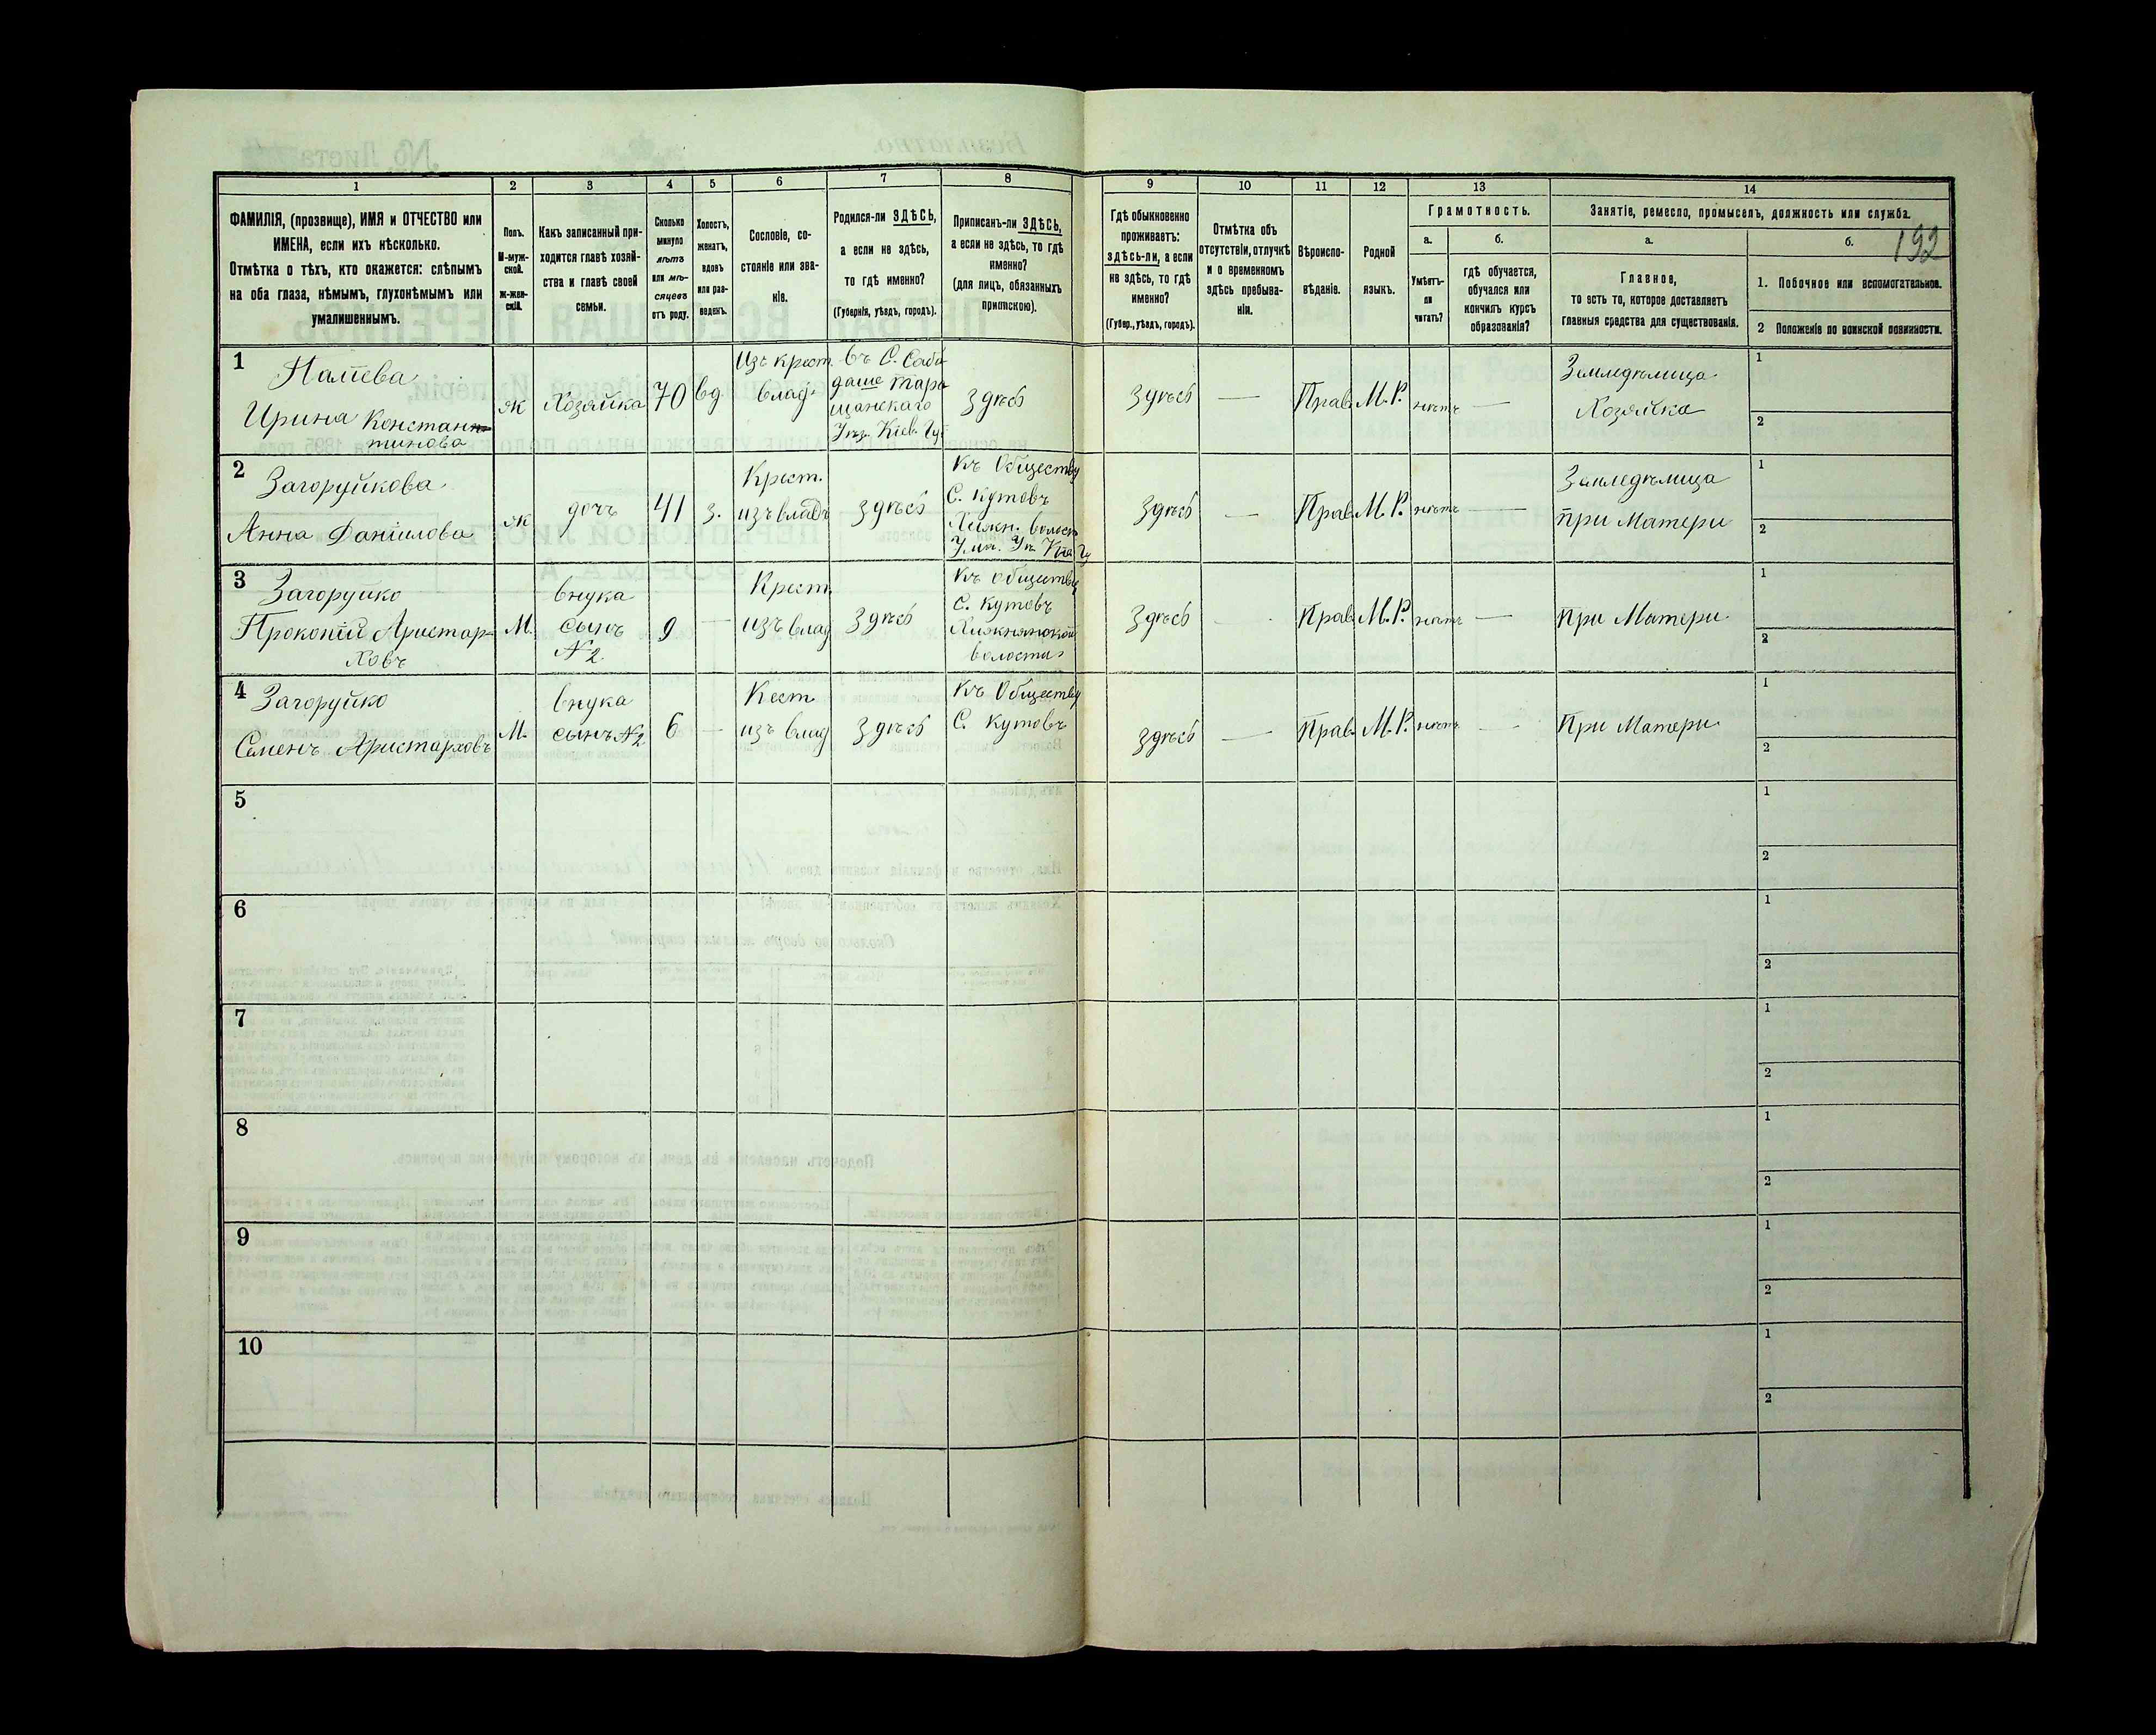 1 2 3 4 5 6 7 8 9 10 11 12 13 14
ФАМИЛІЯ, (прозвище), ИМЯ и ОТЧЕСТВО или
ИМЕНА, если ихъ нѣсколько.
Отмѣтка о тѣхъ, кто окажется: слѣпымъ
на оба глаза, нѣмымъ, глухонѣмымъ или
умалишеннымъ.
Полъ.
М-муж-
ской.
ж-жен-
скій.
Какъ записанный при-
ходится главѣ хозяй-
ства и главѣ своей
семьи.
Сколько
минуло
лѣтъ
или мѣ-
сяцевъ
отъ роду.
Холостъ,
женатъ,
вдовъ
или раз-
веденъ.
Сословіе, со-
стояніе или зва-
ніе.
Родился-ли ЗДѢСЬ,
а если не здѣсь,
то гдѣ именно?
(Губернія, уѣздъ, городъ).
Приписанъ-ли ЗДѢСЬ,
а если не здѣсь, то гдѣ
именно?
(для лицъ, обязанныхъ
припискою).
Гдѣ обыкновенно
проживаетъ:
здѣсь-ли, а если
не здѣсь, то гдѣ
именно?
(Губер., уѣздъ, городъ).
Отмѣтка объ
отсутствіи, отлучкѣ
и о временномъ
здѣсь пребыва-
ніи.
Вѣроиспо-
вѣданіе.
Родной
языкъ.
Грамотность.
а.
Умѣетъ-
ли
читать?
б.
гдѣ обучается,
обучался или
кончилъ курсъ
образованія?
Занятіе, ремесло, промыселъ, должность или служба.
а.
Главное,
то есть то, которое доставляетъ
главныя средства для существованія.
б.
192
1. Побочное или вспомогательное.
2 Положеніе по воинской повинности.
1
Ирина Констан
тинова
ж
Хозяйка
70
вд
Изъ крест.
влад.
въ С. Саба
даше Тара
щанскаго
Уѣз. Кіев. Гу
здѣсь
здѣсь
—
Прав.
М.Р.
нѣтъ
—
Земледѣлица
Хозяйка
1
2
2
Загоруйкова
Анна Даніилова
ж
дочь
41
з.
Крест.
изъ влад
здѣсь
Къ Обществу
С. Кутовъ
Ум. Уѣ. Гу
здѣсь
—
Прав.
М.Р.
нѣтъ
—
Земледѣлица
при Матери
1
2
3
Загоруйко
Прокопій Аристар-
ховъ
М.
внука
сынъ
№ 2.
9
—
Крест.
изъ влад
здѣсь
Къ Обществу
С. Кутовъ
Хижнянской
волости
здѣсь
-
Прав.
М.Р.
нѣтъ
—
При Матери.
1
2
4
Загоруйко
Семенъ Аристарховъ
М.
внука
сынъ №2
6
—
Кест
изъ влад
здѣсь
Къ Обществу
С. Кутовъ
здѣсь
—
Прав.
М.Р.
нѣтъ
—
При Матери.
1
2
5
1
2
6
1
2
7
1
2
8
1
2
9
1
2
10
1
2